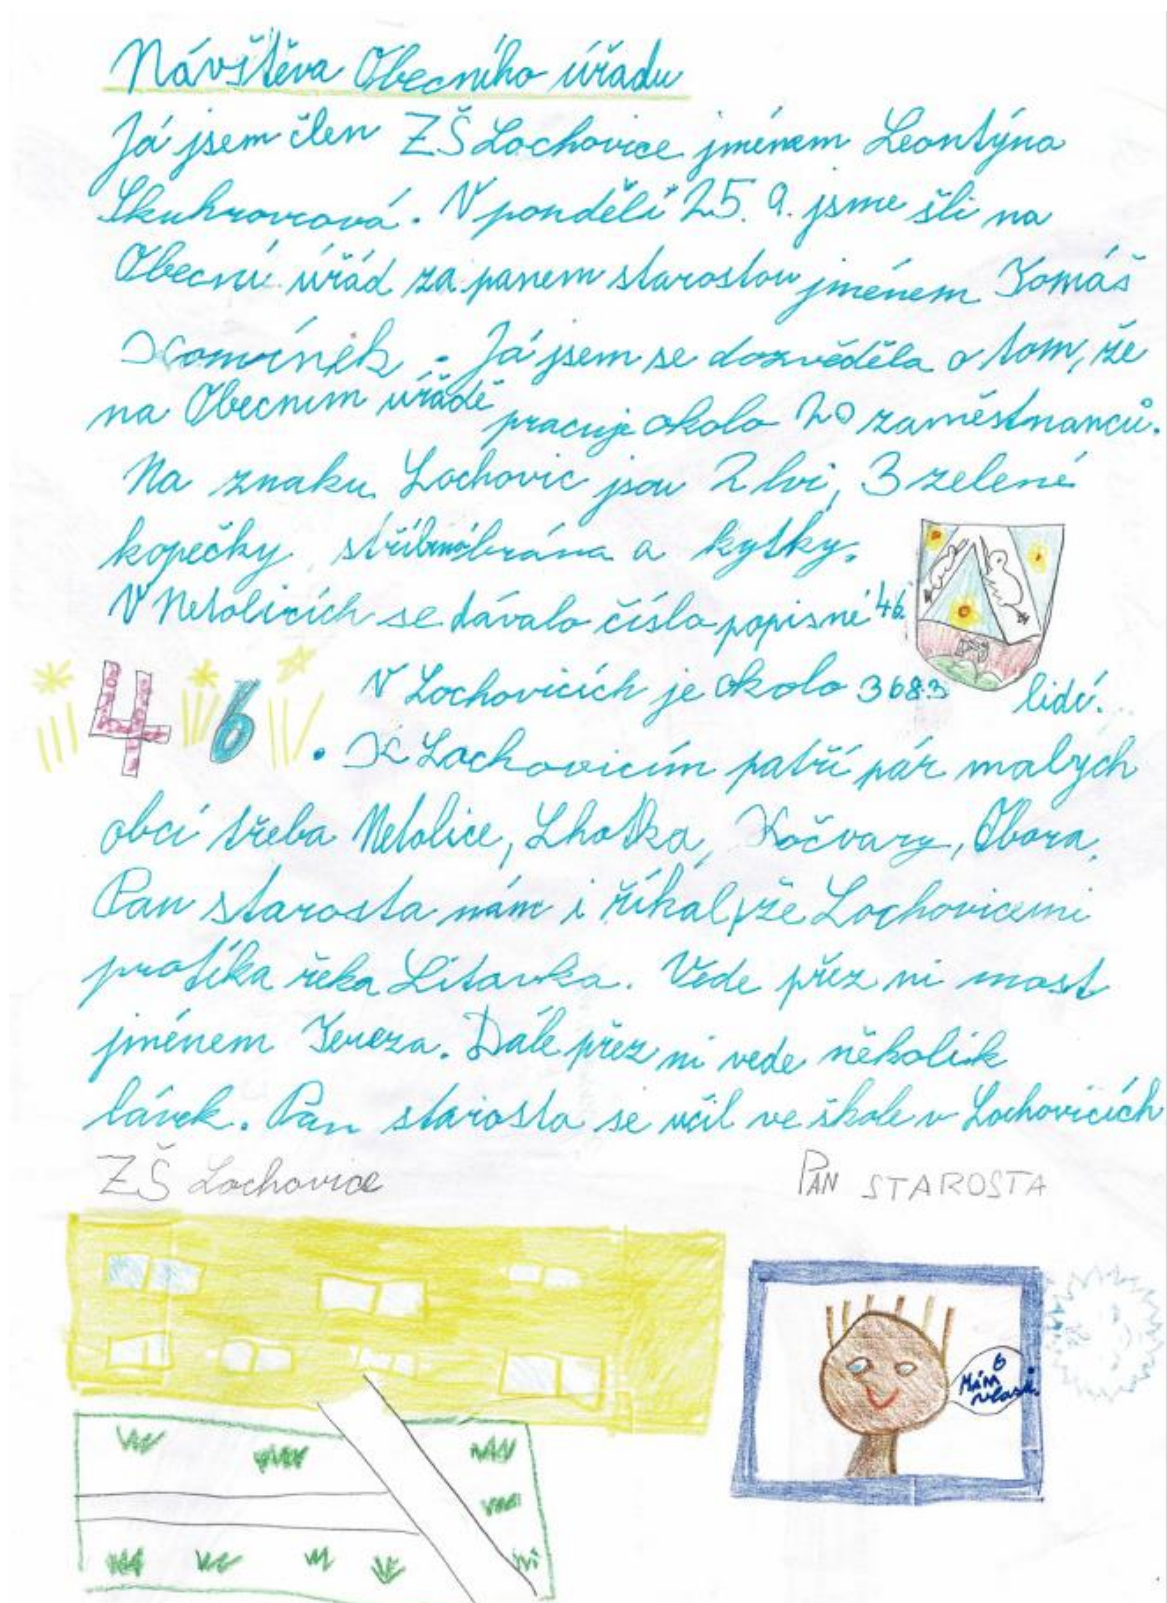 Návštěva Obecního úřadu
Já jsem člen ZŠ Lochovice jménem Leontýna
Skuhrovcová. V pondělí 25. 9. jsme šli na
Obecní úřád za panem starostou jménem Tomáš
Kominék. Já jsem se dozvěděla o tom, že
na Obecním úřadě pracuje okolo 20 zaměstnanců.
Na znaku Lochovic jsou 2 lvi, 3 zelené
kopečky stříbrná brána a kytky.
V Netolicích se dávalo číslo popisné 46.
46
V Lochovicích je okolo 368.3 lidí.
. K Lochovicím patří pár malých
obcí třeba Netolice, Lhotka, Kočvary, Obora,
Pan starosta nám i říkal, že Lochovicemi
protíka řeka Litavka. Vede přez ni most
jménem Tereza. Dále přez ni vede několik
lávek. Pan starosta se učil ve škole v Lochovicích
ZŠ Lochovice
PAN STAROSTA
Mám 6
vlasů.